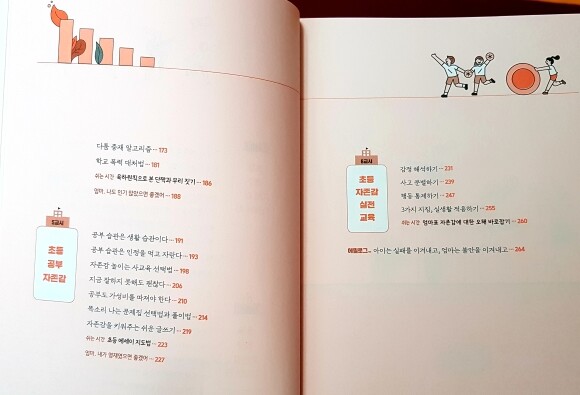 다툼 중재 알고리즘 ··· 173
학교 폭력 대처법 ··· 181
쉬는 시간 육하원칙으로 본 단짝과 무리 짓기 ··· 186
엄마, 나도 인기 많았으면 좋겠어 ··· 188
5교시
초등
공부
자존감
공부 습관은 생활 습관이다 ··· 191
공부 습관은 인정을 먹고 자란다 ··· 193
자존감 높이는 사교육 선택법 ··· 198
지금 잘하지 못해도 괜찮다 ··· 206
공부도 가성비를 따져야 한다 ··· 210
똑소리 나는 문제집 선택법과 풀이법 ··· 214
자존감을 키워주는 쉬운 글쓰기 ··· 219
쉬는 시간 초등 에세이 지도법 ··· 223
엄마, 내가 영재였으면 좋겠어 ··· 227
6교시
초등
자존감
실전
교육
감정 해석하기 ··· 231
사고 분별하기 ··· 239
행동 통제하기 ··· 247
3가지 지침, 실생활 적용하기 ··· 255
쉬는 시간 엄마표 자존감에 대한 오해 바로잡기 ··· 260
에필로그 ··· 아이는 실패를 이겨내고, 엄마는 불안을 이겨내고 ··· 264